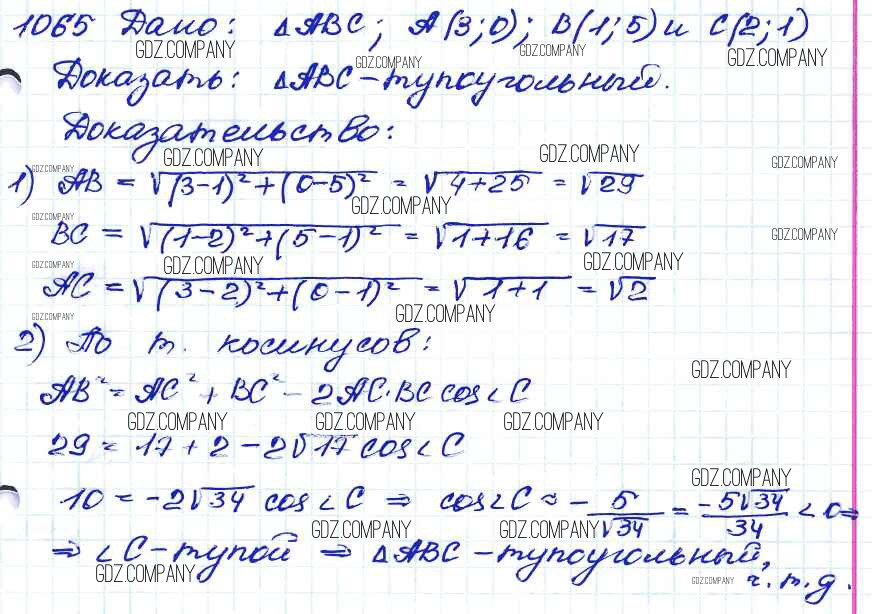 1065 Дано: △ABC; A(3;0); B(1;5) и C(2;1)
GDZ.COMPANY GDZ.COMPANY GDZ.COMPANY GDZ.COMPANY
Доказать: △ABC – тупоугольный.
Доказательство:
GDZ.COMPANY GDZ.COMPANY GDZ.COMPANY GDZ.COMPANY
1) AB = √(3-1)² + (0-5)² = √4+25 = √29
GDZ.COMPANY GDZ.COMPANY
BC = √(1-2)² + (5-1)² = √1+16 = √17 GDZ.COMPANY
GDZ.COMPANY GDZ.COMPANY GDZ.COMPANY
AC = √(3-2)² + (0-1)² = √1+1 = √2
GDZ.COMPANY GDZ.COMPANY
2) По т. косинусов:
GDZ.COMPANY
AB² = AC² + BC² - 2AC·BC cos∠C
GDZ.COMPANY GDZ.COMPANY GDZ.COMPANY
29 = 17 + 2 - 2√17 cos∠C
GDZ.COMPANY
10 = -2√34 cos∠C ⇒ cos∠C = - 5/√34 = -5√34/34 < 0 ⇒
GDZ.COMPANY GDZ.COMPANY
⇒ ∠C – тупой ⇒ △ABC – тупоугольный,
GDZ.COMPANY GDZ.COMPANY ч.т.д.